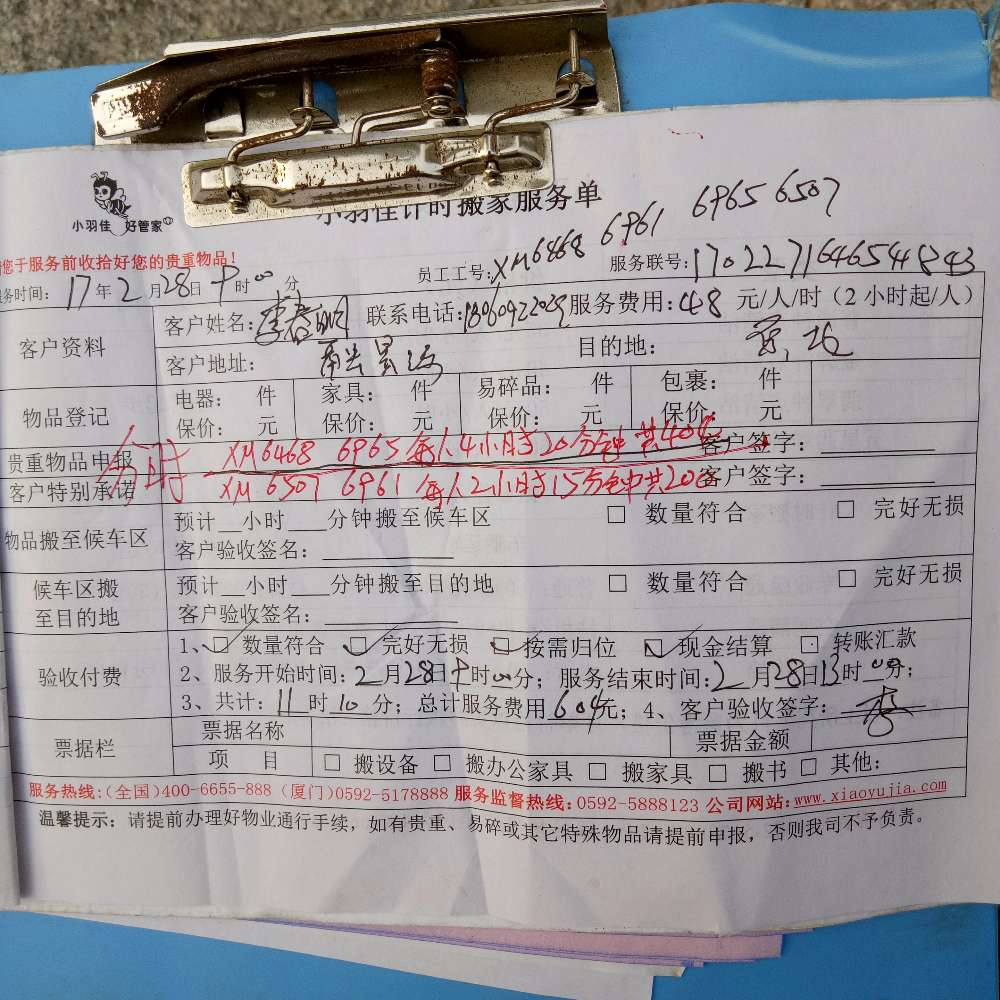 小羽佳 好管家
小羽佳计时搬家服务单
您于服务前收拾好您的贵重物品！
员工工号：XM6468 6961 6965 6507
服务联号：1702271646548843
服务时间：17年2月28日 时00分
客户资料
客户姓名：李春明 联系电话： 服务费用：48元/人/时（2小时起/人）
客户地址： 目的地：
物品登记
电器： 件 家具： 件 易碎品： 件 包裹： 件
保价： 元 保价： 元 保价： 元 保价： 元
贵重物品申报 客户签字：
分时 XM6468 6965每人4小时20分钟共404
客户特别承诺 客户签字：
XM6507 6961每人2小时15分钟共200
物品搬至候车区
预计 小时 分钟搬至候车区 □ 数量符合 □ 完好无损
客户验收签名：
候车区搬至目的地
预计 小时 分钟搬至目的地 □ 数量符合 □ 完好无损
客户验收签名：
验收付费
1、☑数量符合 ☑完好无损 ☑按需归位 ☑现金结算 □ 转账汇款
2、服务开始时间：2月28日 时00分；服务结束时间：2月28日13时00分；
3、共计：11时10分；总计服务费用604元；4、客户验收签字：李
票据栏
票据名称 票据金额
项 目 □ 搬设备 □ 搬办公家具 □ 搬家具 □ 搬书 □ 其他：
服务热线：(全国)400-6655-888 (厦门)0592-5178888 服务监督热线：0592-5888123 公司网站：www.xiaoyujia.com
温馨提示：请提前办理好物业通行手续，如有贵重、易碎或其它特殊物品请提前申报，否则我司不予负责。